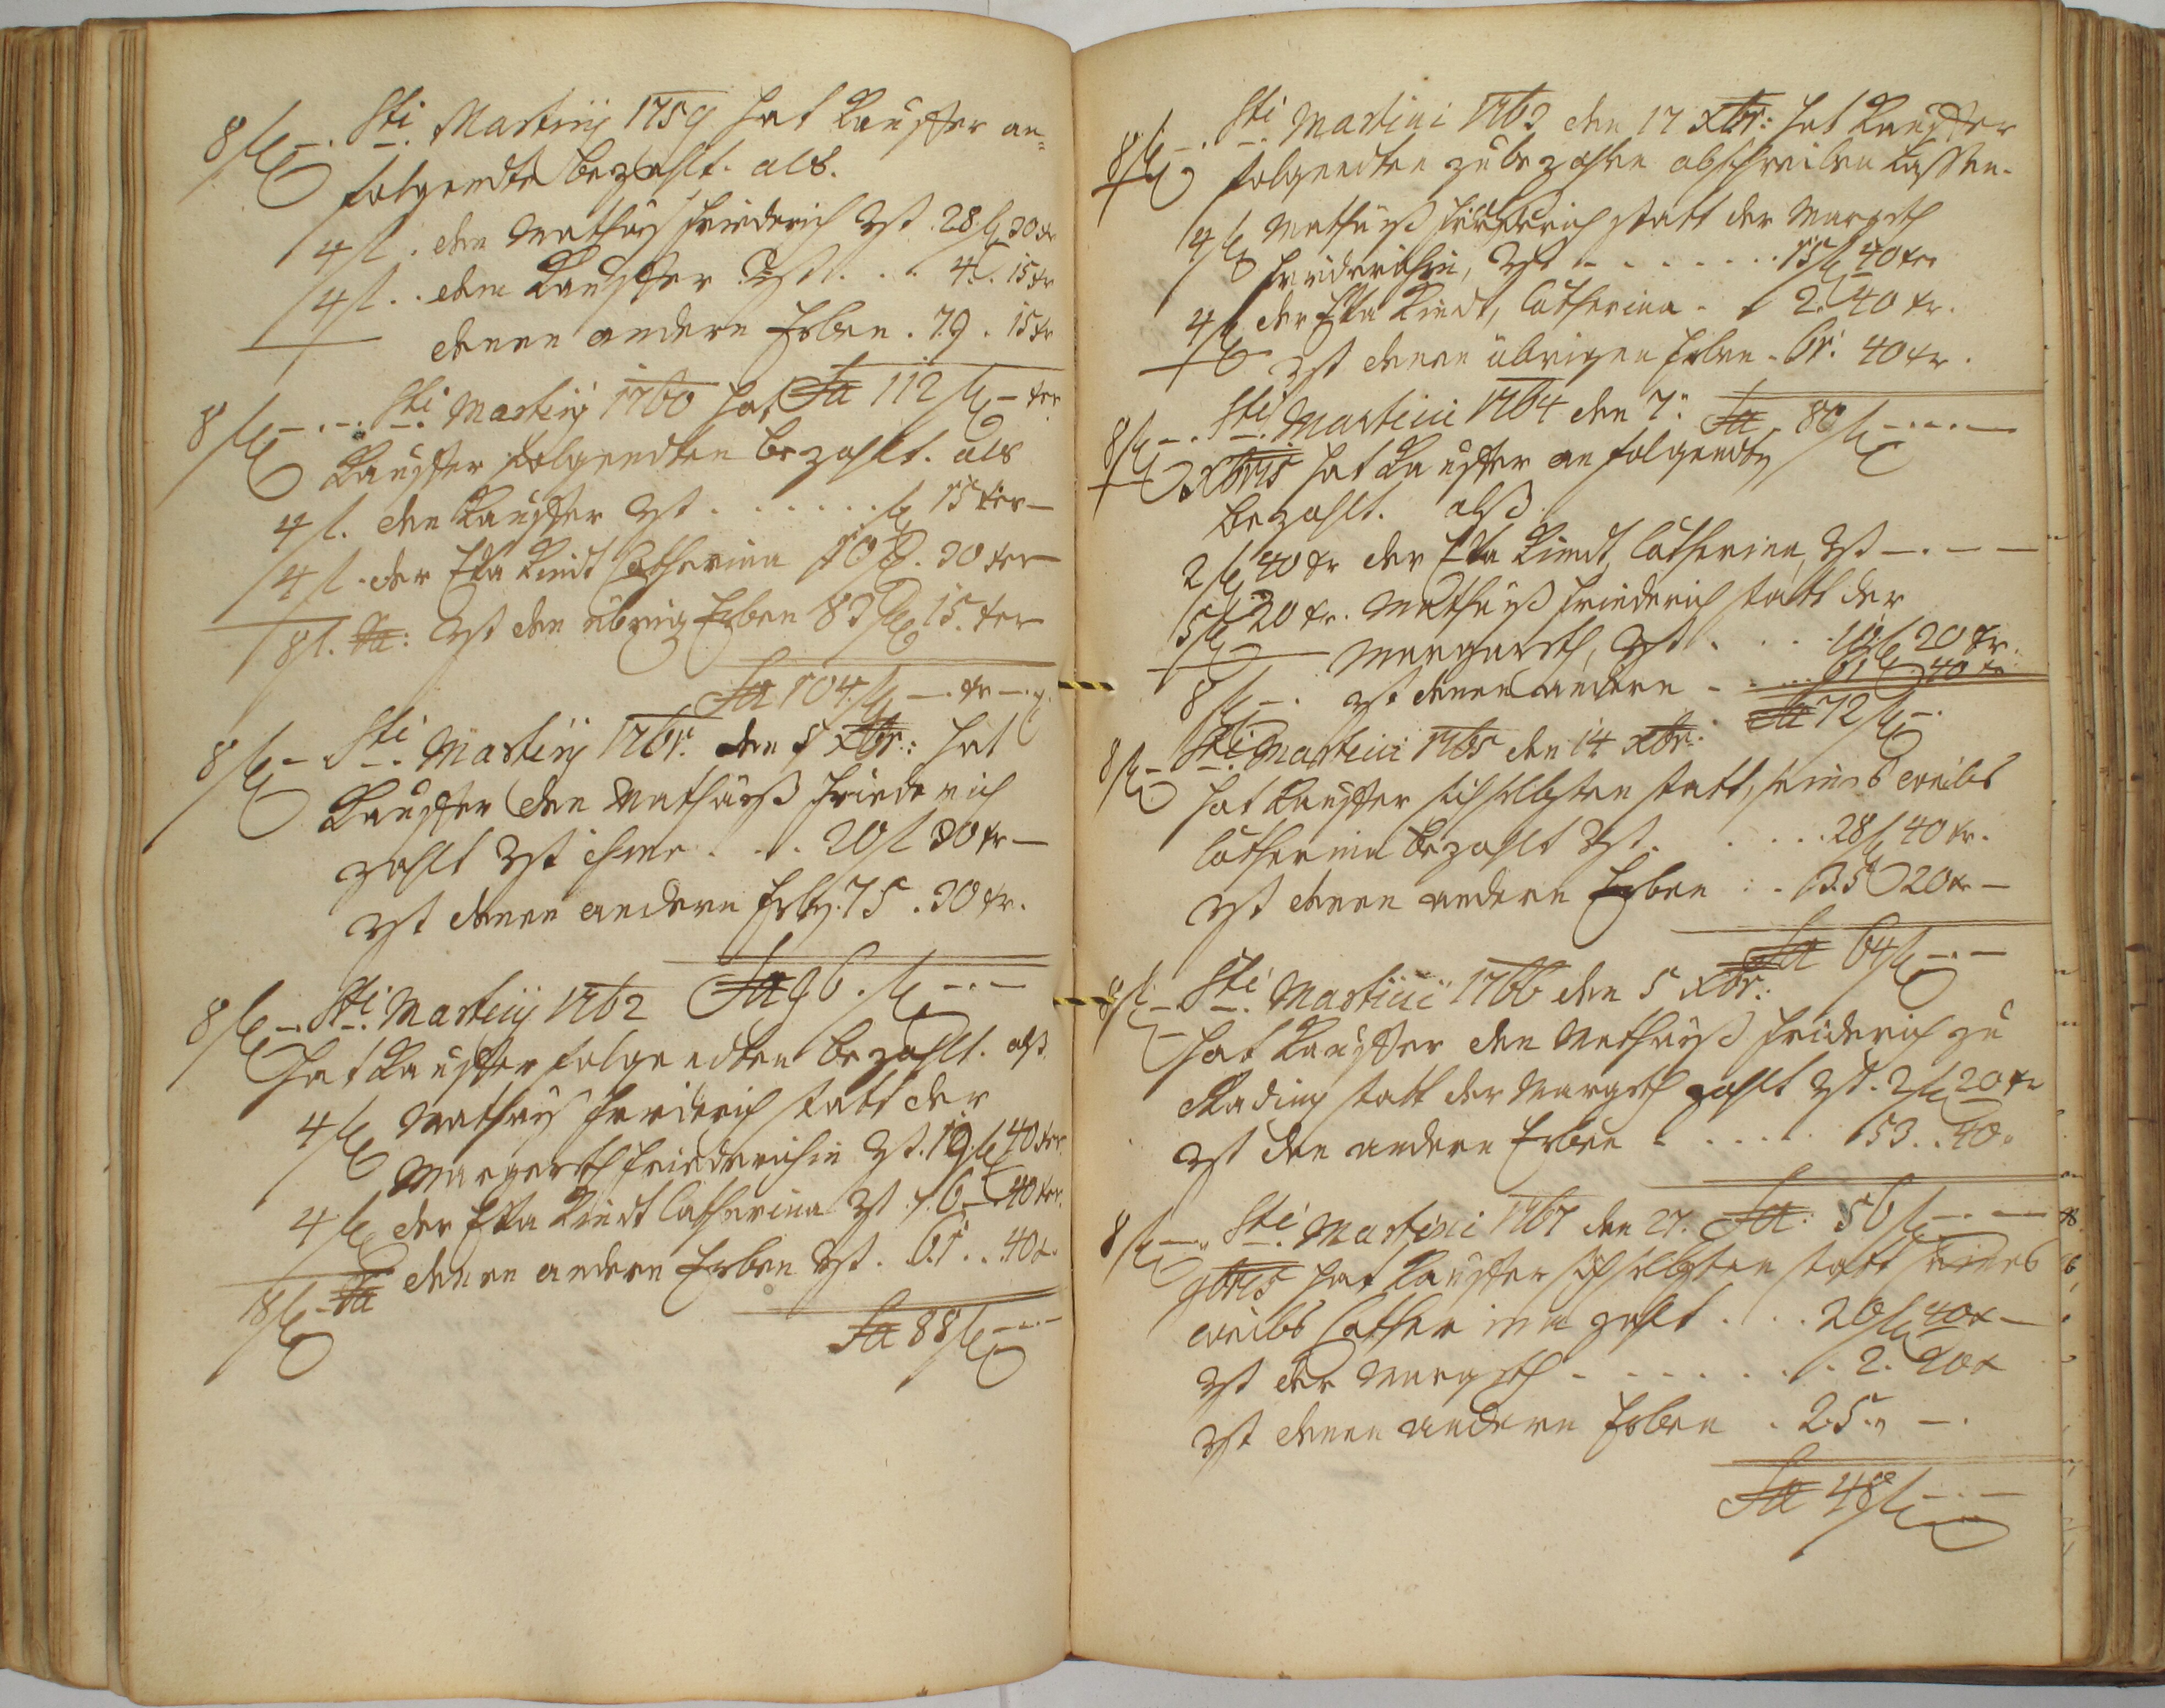 8 fl — . Sti. Martinij 1759 hat Kauffer an-
folgendte bezahlt. als.
4 fl. dem Mathäus Friederich rst. 28 fl 30 xr
4 fl. dem Kauffer rst . . . 4. 15 xr
denen andern Erben . 79 . 15 xr
Sa 112 fl — xr
8 fl — . — . Sti. Martinij 1760 hat
Kauffer folgendten bezahlt. als
4 fl. dem Kauffer rst . . . . . . . fl 15 xr —
4 fl. der Kindt Catharina 20 fl. 30 xr
8 fl. Sa: rst den übrig Erben 83 fl 15. xr
Sa 104 fl — . xr — .
8 fl — Sti. Martinij 1761. den 8 Xbr: hat
Kauffer dem Mathäuß Friederich
zahlt rst ihme . . . 20 fl 30 xr —
rst denen andern Erben. 75 . 30 xr.
Sa 96. fl — . —
8 fl — Sti. Martinij 1762
hat Kauffer folgendten bezahlt. alß
4 fl Mathäus Friderich statt der
Margareth Friederichin rst. 19 fl 40 xr.
4 fl der Kindt Catharina rst . 6 — 40 xr.
8 fl — Sa denen andern Erben rst . 61 . . 40 x.
Sa 88 fl — . —
8 fl — . Sti. Martini 1763 den 17 Xbr: hat Kauffer
folgendten zu bezahlen abschreiben lassen.
4 fl Mathäuß Friederich statt der Margreth
Friderichin, rst — . . . . . . 15 fl 40 xr
4 fl der Kindt, Catharina . . 2. 40 xr.
rst denen übrigen Erben . 61. 40 xr.
Sa . 80 fl — . — . —
8 fl — . Sti. Martini 1764 den 7.
Xbris hat Kauffer an folgendte
bezahlt. alß
2 fl 40 xr der Kindt, Catharina, rst — . — —
5 fl 20 xr. Mathäuß Friederich statt der
Margareth, rst . . . . 10 fl 20 xr.
8 fl — . rst denen andern — . . . 61 . 40 xr
Sa 72 fl — .
8 fl — Sti. Martini 1765 den 14 Xbr:
hat Kauffer sich selbsten statt, seines weibs
Catharina bezahlt rst . . . . . 28 fl 40 xr.
rst denen andern Erben . . 35 20 xr —
Sa 64 fl — . —
8 fl — Sti. Martini 1766 den 5 Xbr:
hat Kauffer dem Mathäuß Friderich zu
statt der Margreth zahlt rst. 2 fl 20 xr
rst den andern Erben . . . . . . 53 . . 40.
Sa: 56 fl — . —
8 fl — . Sti. Martini 1767 den 27.
9bris hat Kauffer sich selbsten statt seines
weibs Catharina zahlt . . . 20 fl 40 x —
rst der Margreth — . . . . . . . 2. 20 x
rst denen andern Erben . 25. — .
Sa 48 fl — . —